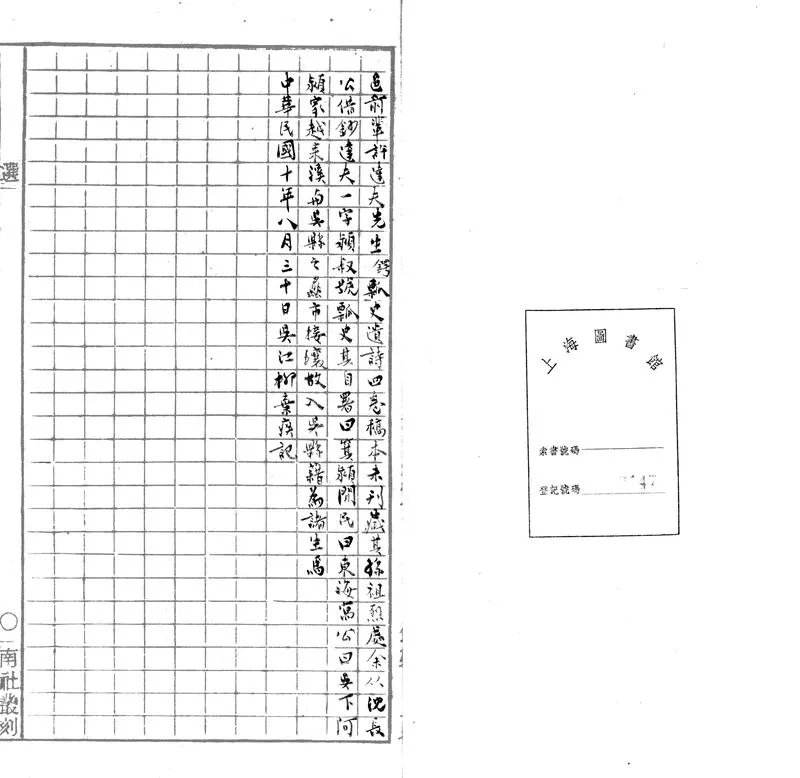 邑前輩許達夫先生鍔瓢史遺詩四卷稿本未刊藏其孫祖烈處余从沈長
公借鈔達夫一字潁叔號瓢史其自署曰箕潁閒民曰東海寓公曰吳下阿
潁家越來溪與吳縣之蠡市接壤故入吳縣籍爲諸生焉
中華民國十年八月三十日吳江柳棄疾記
選
○南社叢刻
上海圖書館
索書號碼
登記號碼